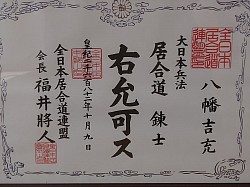 八幡吉充
大日本兵法
居合道 錬士
右允可ス
皇紀二千六百八十三年十月九日
全日本居合道連盟
会長 福井將人